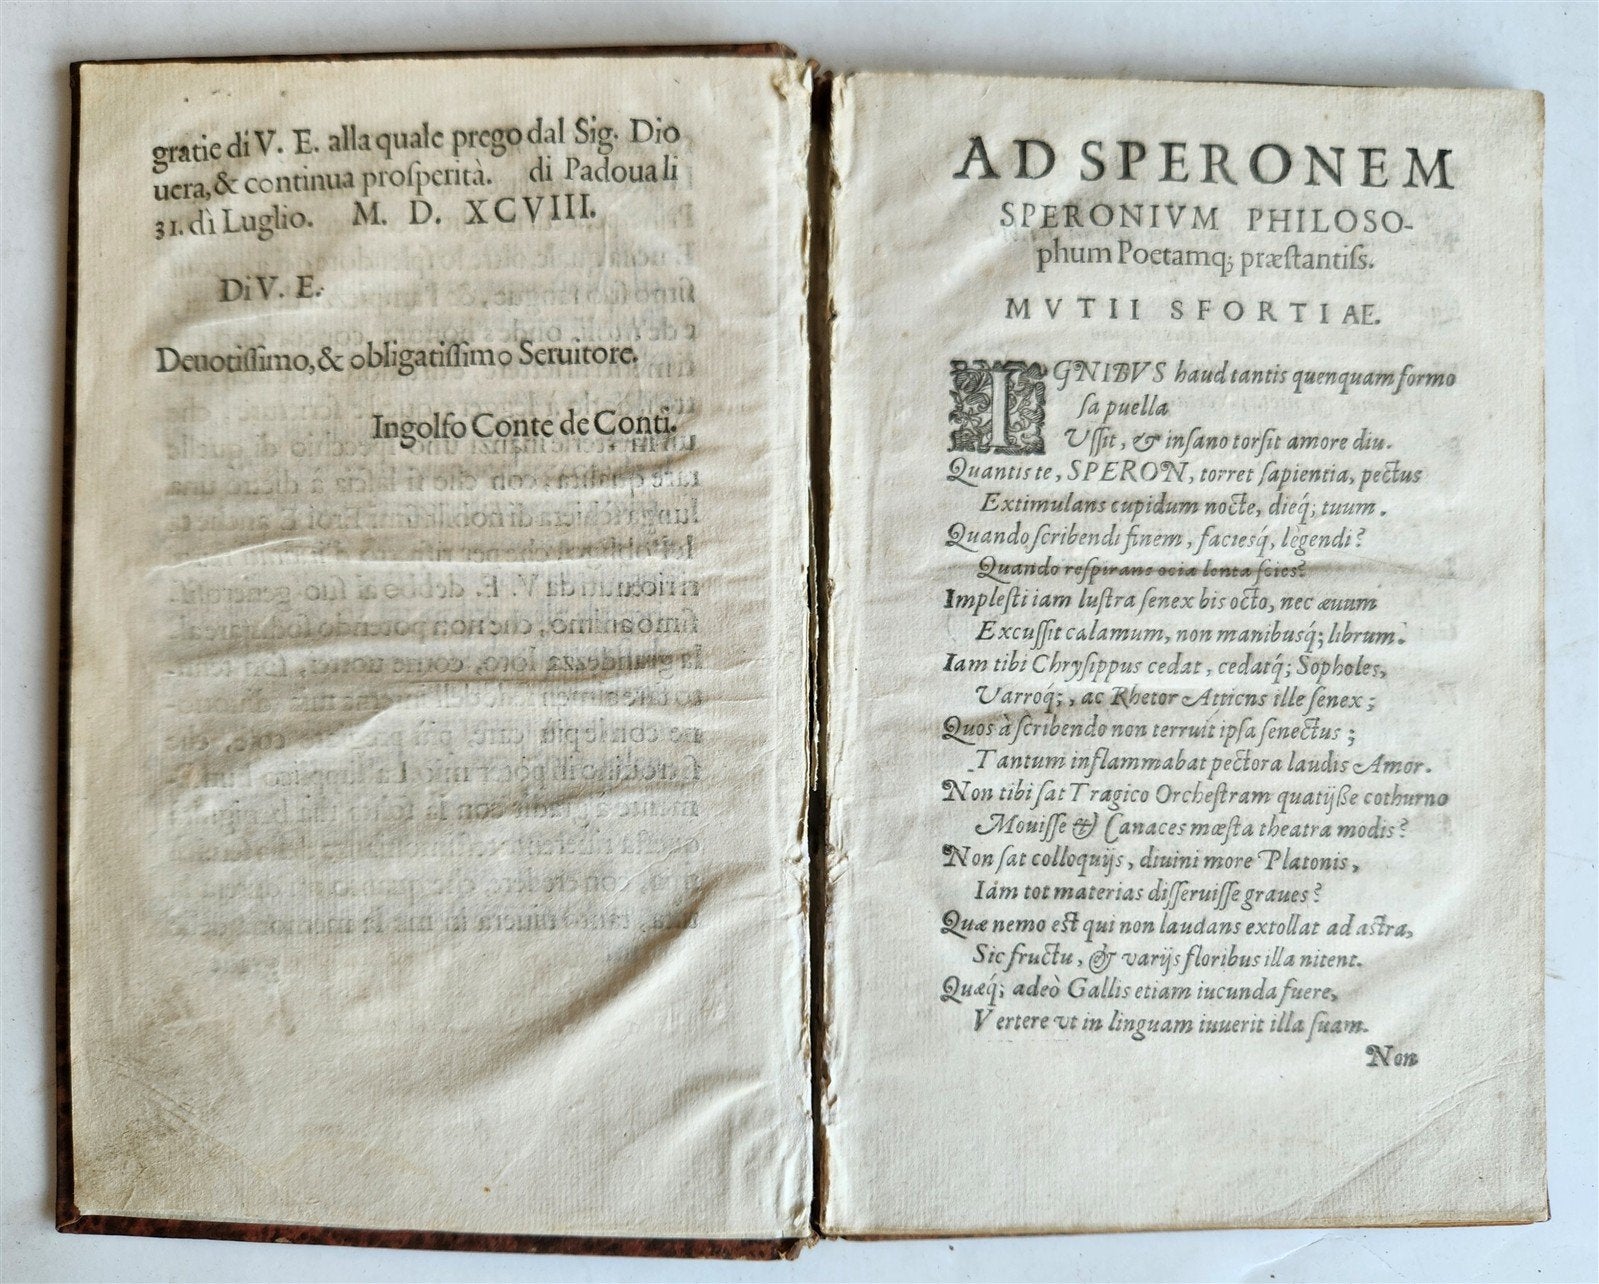 gratie di V. E. alla quale prego dal Sig. Dio
uera, & continua prosperità. di Padoua li
31. dì Luglio. M. D. XCVIII.
Di V. E.
Deuotissimo, & obligatissimo Seruitore.
Ingolfo Conte de Conti.
AD SPERONEM
SPERONIVM PHILOSO-
phum Poetamq; præstantiss.
MVTII SFORTIAE.
IGNIBVS haud tantis quenquam formo
sa puella
Vssit, & insano torsit amore diu.
Quantis te, SPERON, torret sapientia, pectus
Extimulans cupidum nocte, dieq́; tuum.
Quando scribendi finem, faciesq́, lègendi?
Quando respirans ocia lenta scies?
Implesti iam lustra senex bis octo, nec æuum
Excussit calamum, non manibusq́; librum.
Iam tibi Chrysippus cedat, cedatq́; Sopholes,
Varroq́;, ac Rhetor Atticns ille senex;
Quos à scribendo non terruit ipsa senectus;
Tantum inflammabat pectora laudis Amor.
Non tibi sat Tragico Orchestram quatijße cothurno
Mouisse & Canaces mœsta theatra modis?
Non sat colloquijs, diuini more Platonis,
Iám tot materias disseruisse graues?
Quæ nemo est qui non laudans extollat ad astra,
Sic fructu, & varijs floribus illa nitent.
Quæq́; adeò Gallis etiam iucunda fuere,
Vertere vt in linguam iuuerit illa suam.
Non